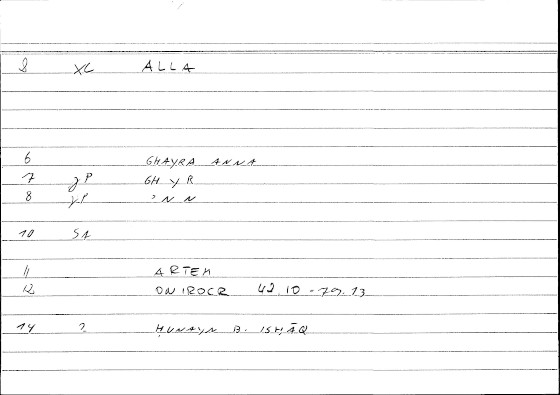 8 XL ALLA
6 GHAYRA ANNA
7 γP GH Y R
8 γP ʾ N N
10 SA
11 ARTEM
12 ONIROCR 42.10 - 79.13
14 ? ḤUNAYN B. ISḤĀQ